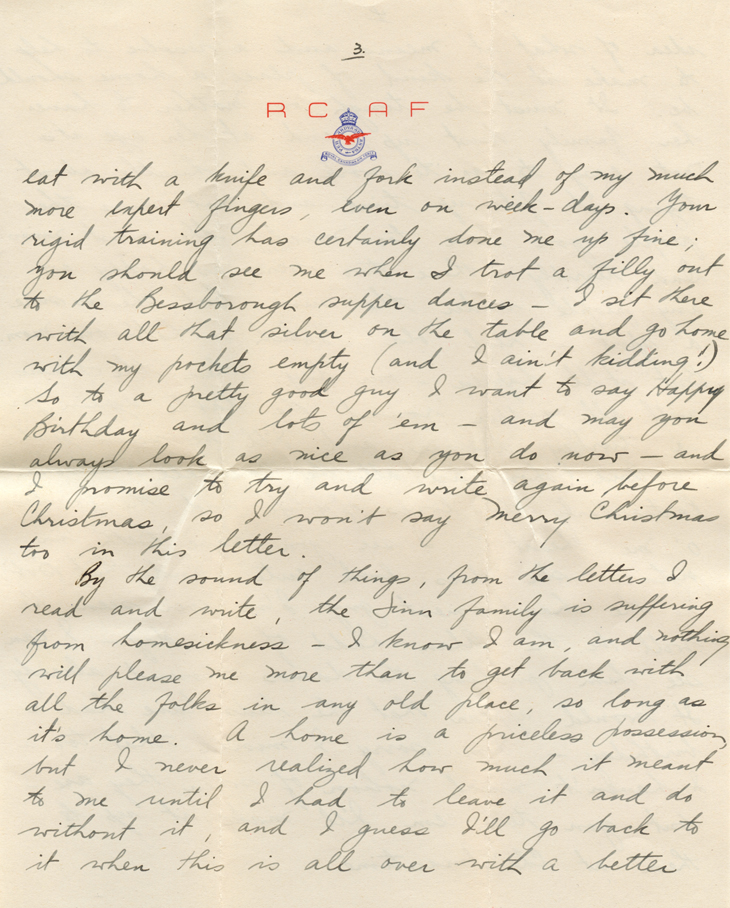 3.
R C A F
eat with a knife and fork instead of my much
more expert fingers, even on week-days. Your
rigid training has certainly done me up fine;
you should see me when I trot a filly out
to the Bessborough supper dances - I sit there
with all that silver on the table and go home
with my pockets empty (and I ain't kidding!)
So to a pretty good guy I want to say Happy
Birthday and lots of 'em - and may you
always look as nice as you do now - and
I promise to try and write again before
Christmas, so I won't say Merry Christmas
too in this letter.
By the sound of things, from the letters I
read and write, the family is suffering
from homesickness - I know I am, and nothing
will please me more than to get back with
all the folks in any old place, so long as
it's home. A home is a priceless possession,
but I never realized how much it meant
to me until I had to leave it and do
without it, and I guess I'll go back to
it when this is all over with a better